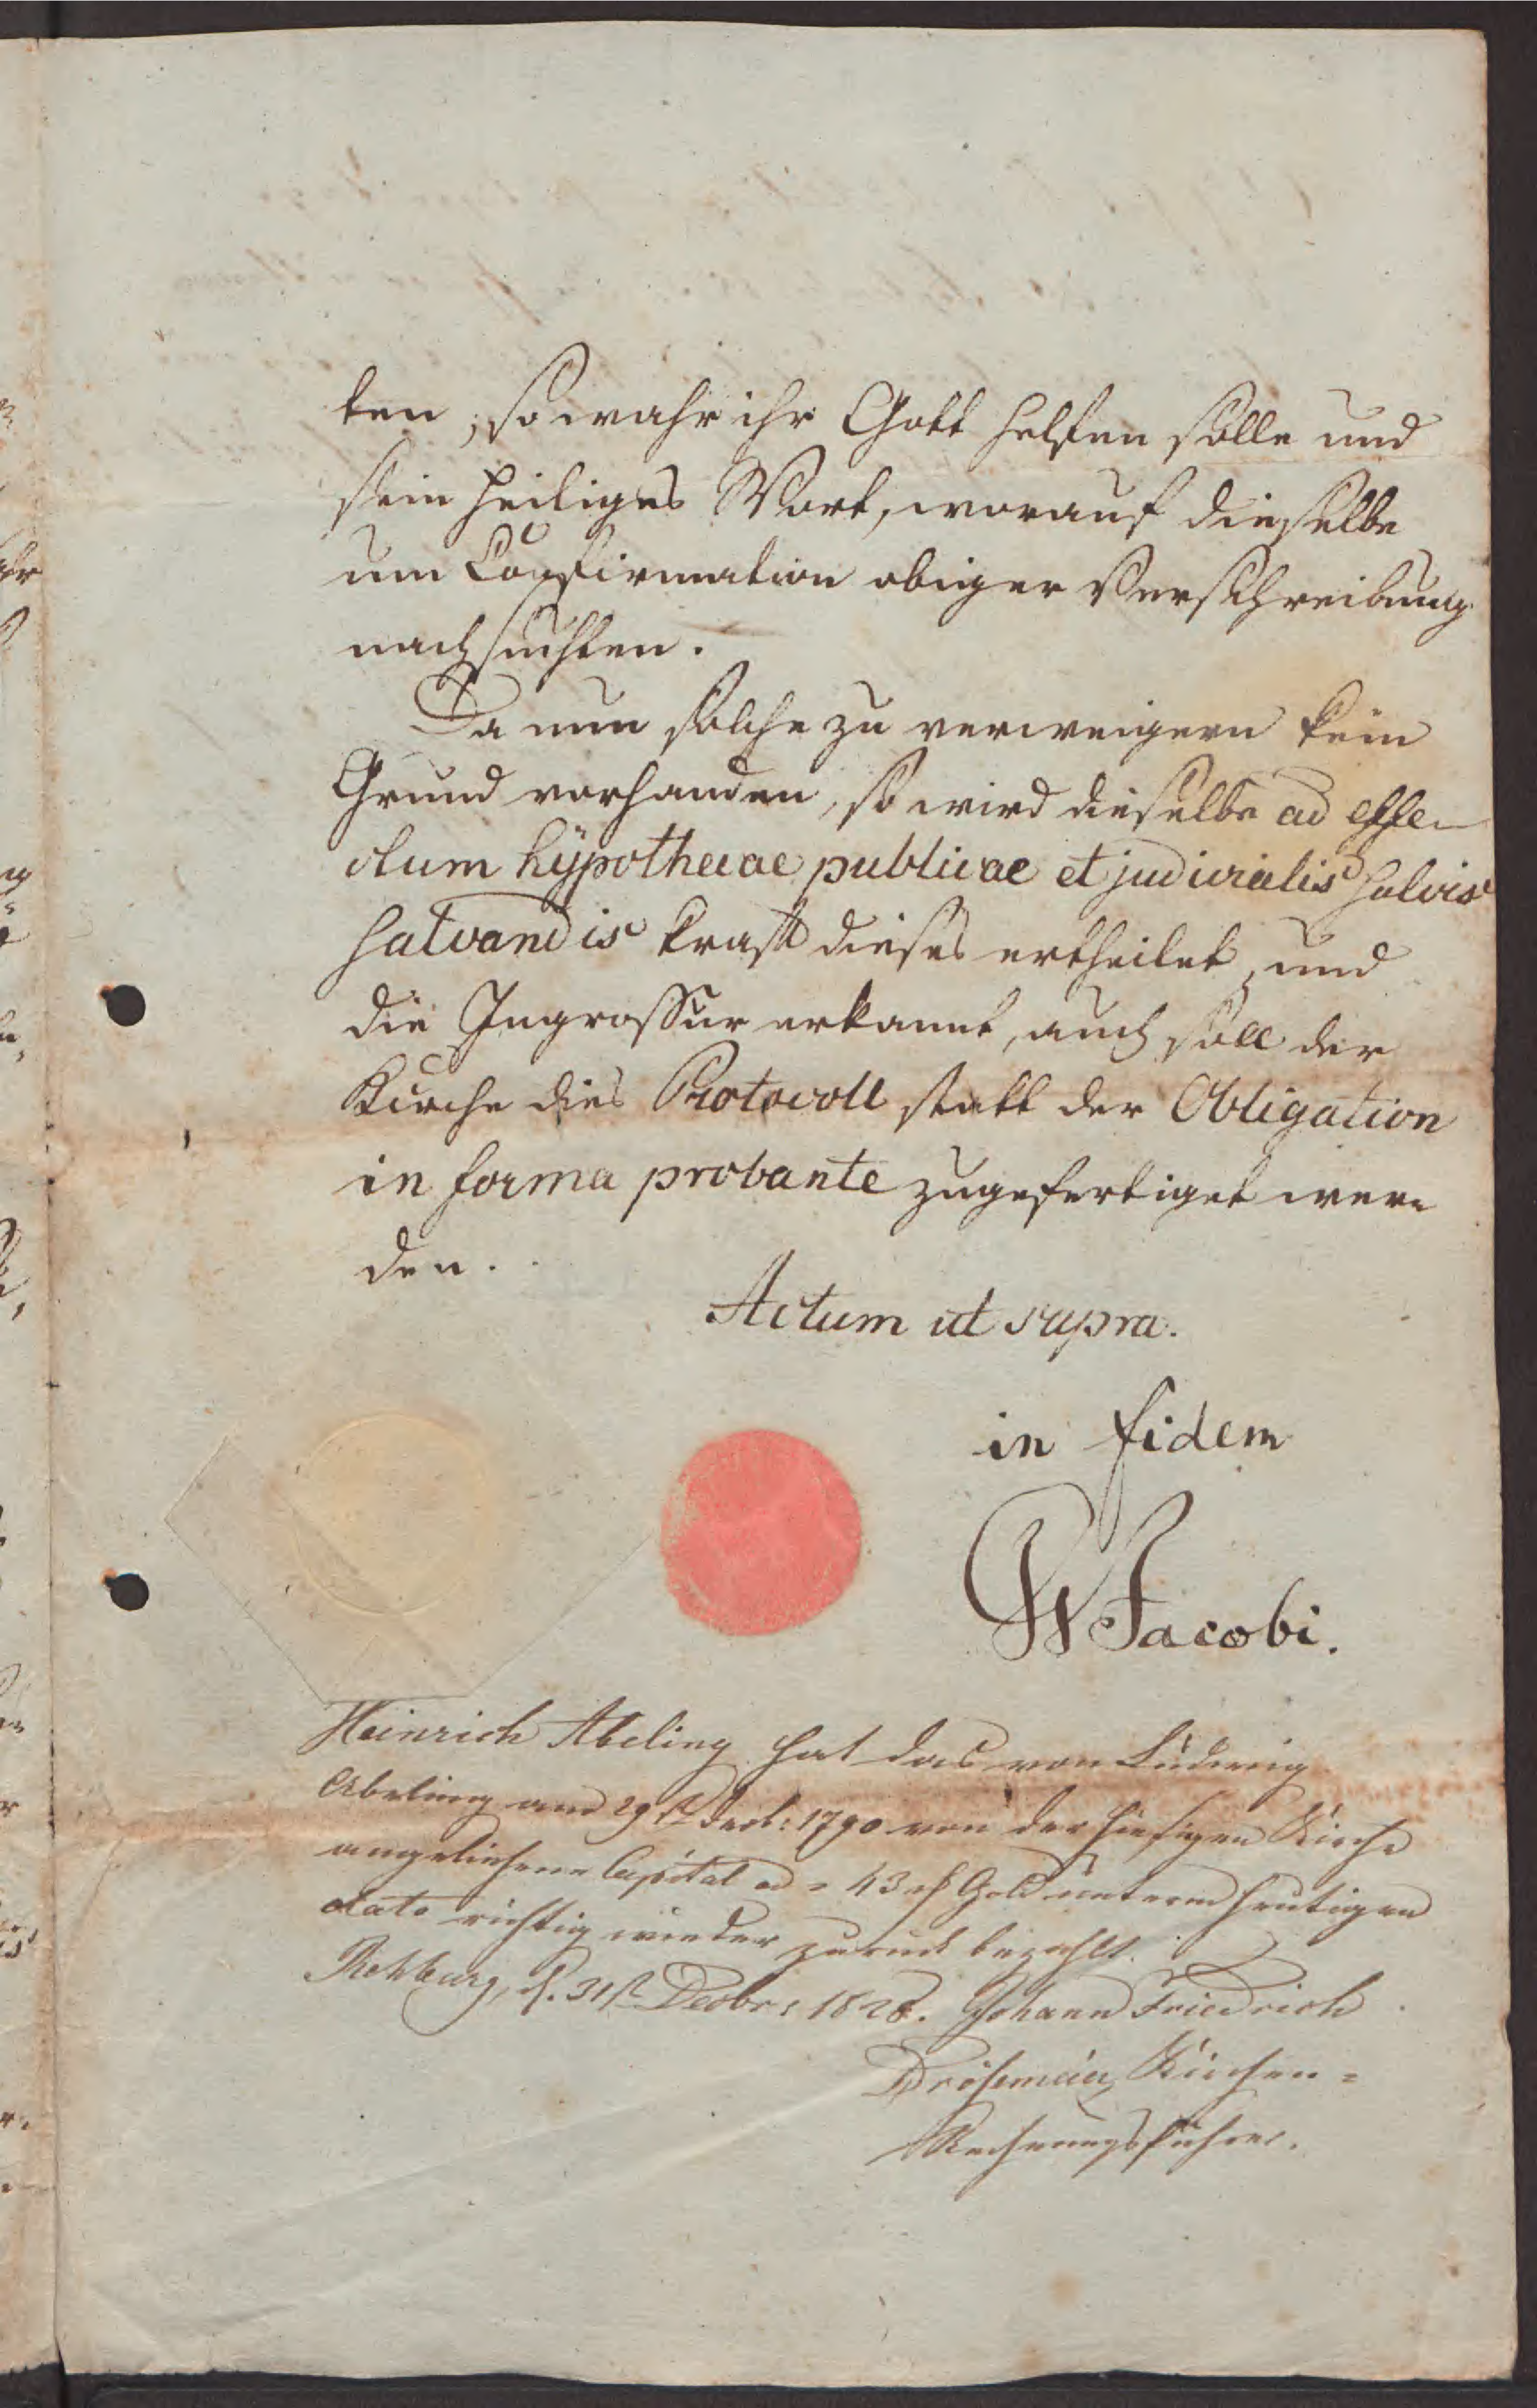 ten, so wahr ihr Gott helfen solle und
sein heiliges Wort, worauf dieselbe
um Confirmation obiger Verschreibung
nachsuchten.
Da nun solche zu verweigern kein
Grund vorhanden, so wird dieselbe ad effe-
ctum hÿpothecae publicae et judicialis salvis
salvandis kraft dieses ertheilet, und
die Ingrossur erkannt, auch soll der
Kirche dies Protocoll statt der Obligation
in forma probante zugefertiget wer-
den.
Actum ut supra.
in fidem
GW Jacobi.
Heinrich Abeling hat das von Ludewig
Abeling am 29t Dec: 1790 von der hiesigen Kirche
angeliehene Capital ad = 43 rh Gold unterm heutigen
dato richtig wieder zurück bezahlt.
Rehburg, d. 31t Decbr: 1828. Johann Friedrich
Drösemeier Kirchen=
Rechnungsführer.